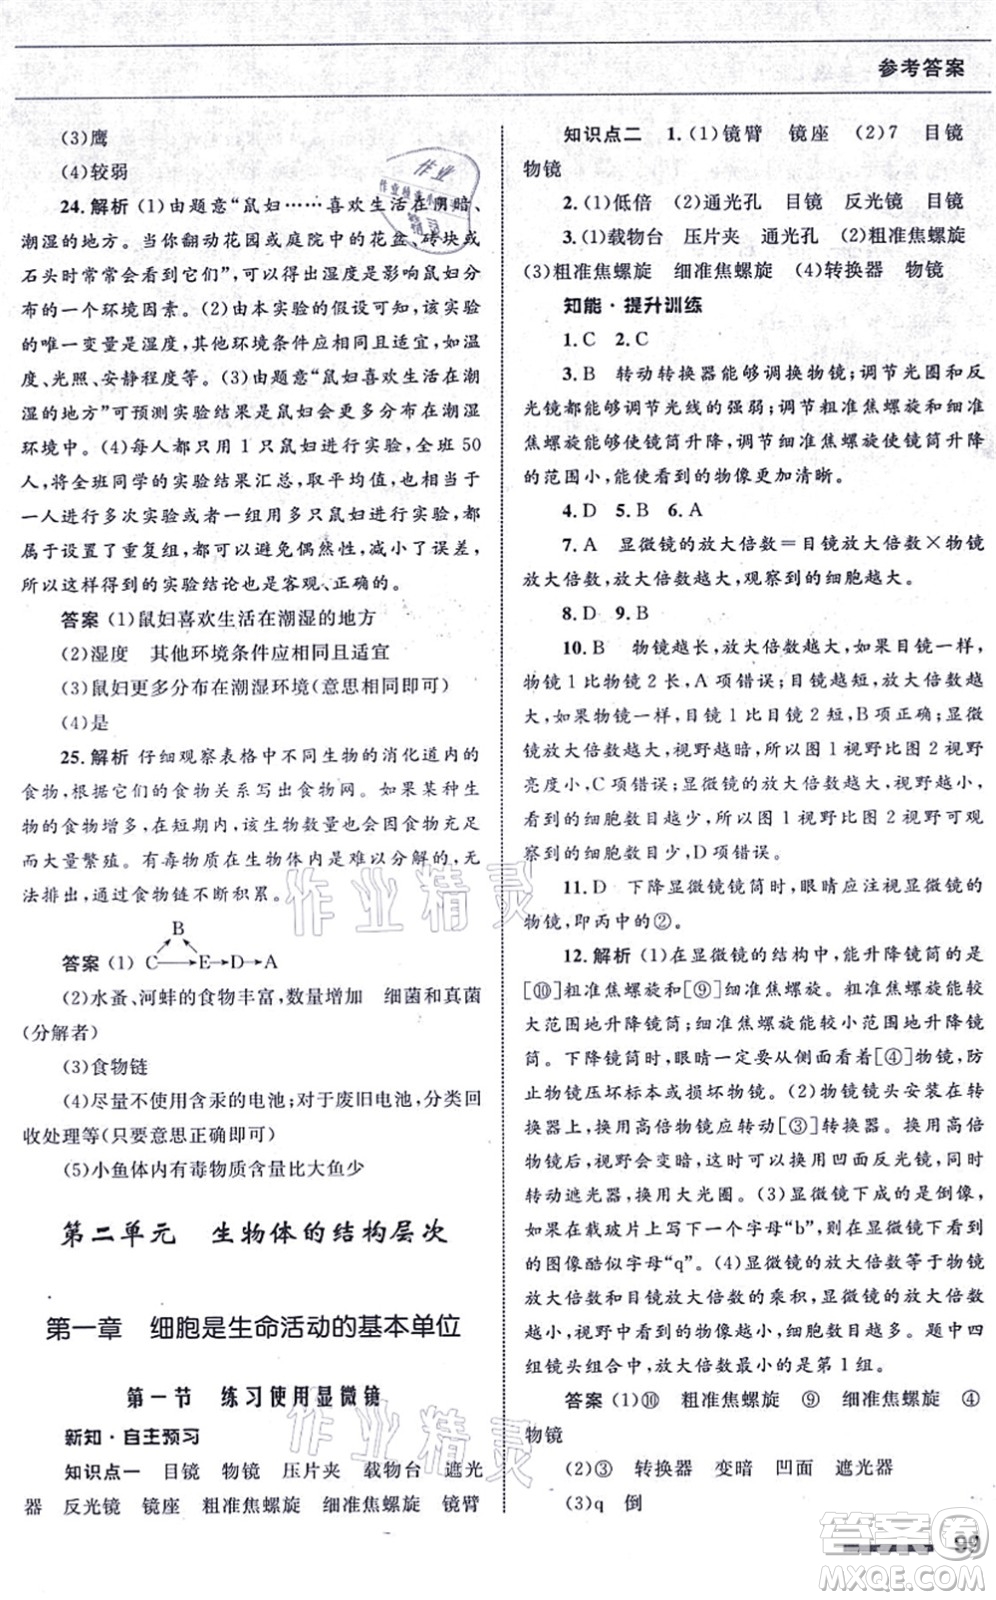 参考答案
(3)鹰
(4)较弱
24. 解析 (1)由题意“鼠妇……喜欢生活在阴暗、
潮湿的地方。当你翻动花园或庭院中的花盆、砖块或
石头时常常会看到它们”,可以得出湿度是影响鼠妇分
布的一个环境因素。(2)由本实验的假设可知,该实验
的唯一变量是湿度,其他环境条件应相同且适宜,如温
度、光照、安静程度等。(3)由题意“鼠妇喜欢生活在潮
湿的地方”可预测实验结果是鼠妇更多分布在潮湿
环境中。(4)每人都只用 1 只鼠妇进行实验,全班 50
人,将全班同学的实验结果汇总,取平均值,也相当于
一人进行多次实验或者用多只鼠妇进行实验,即都
属于设置了重复组,都可以避免偶然性,减小了误差,
所以这样得到的实验结论也是客观、正确的。
答案 (1)鼠妇喜欢生活在潮湿的地方
(2)湿度 其他环境条件应相同且适宜
(3)鼠妇更多分布在潮湿环境(意思相同即可)
(4)是
25. 解析 仔细观察表格中不同生物的消化道内的
食物,根据它们的食物关系写出食物网。如果某种生
物的食物增多,在短期内,该生物数量会因食物充足
而大量繁殖。有毒物质在生物体内是难以分解的,无
法排出,会沿着食物链不断积累。
B
答案 (1) C→E→D→A
(2)水蚤、河蚌的食物丰富,数量增加 细菌和真菌
(分解者)
(3)食物链
(4)尽量不使用含汞的电池;对于废旧电池,分类回
收处理等(只要意思正确即可)
(5)小鱼体内有毒物质含量比大鱼少
第二单元 生物体的结构层次
第一章 细胞是生命活动的基本单位
第一节 练习使用显微镜
新知·自主预习
知识点一 目镜 物镜 压片夹 载物台 遮光
器 反光镜 镜座 粗准焦螺旋 细准焦螺旋 镜臂
知识点二 1. (1)镜臂 镜座 (2)7 目镜
物镜
2. (1)低倍 (2)通光孔 目镜 反光镜 目镜
3. (1)载物台 压片夹 通光孔 (2)粗准焦螺旋
(3)粗准焦螺旋 细准焦螺旋 (4)转换器 物镜
知能·提升训练
1. C 2. C
3. B 转动转换器能够调换物镜;调节光圈和反
光镜都能够调节光线的强弱;调节粗准焦螺旋和细准
焦螺旋都能够使镜筒升降,调节细准焦螺旋镜筒升降
的范围小,能使看到的物像更加清晰。
4. D 5. B 6. A
7. A 显微镜的放大倍数=目镜放大倍数×物镜
放大倍数,放大倍数越大,观察到的细胞越大。
8. D 9. B
10. B 物镜越长,放大倍数越大,如果目镜一样,
物镜 1 比物镜 2 长,A 项错误;目镜越短,放大倍数越
大,如果物镜一样,目镜 1 比目镜 2 短,B 项正确;显微
镜的放大倍数越大,视野越暗,所以图 1 视野比图 2 视野
亮度小,C 项错误;显微镜的放大倍数越大,视野越小,
看到的细胞数目越少,所以图 1 视野比图 2 视野可观
察到的细胞数目少,D 项错误。
11. D 下降显微镜镜筒时,眼睛应注视显微镜的
物镜,即丙中的②。
12. 解析 (1)在显微镜的结构中,能升降镜筒的是
[⑩]粗准焦螺旋和[⑨]细准焦螺旋。粗准焦螺旋能较
大范围地升降镜筒;细准焦螺旋能较小范围地升降镜
筒。下降镜筒时,眼睛一定要从侧面看着[④]物镜,防
止物镜压坏标本或损坏物镜。(2)物镜镜头安装在转
换器上,换用高倍物镜应转动[③]转换器。换用高倍
物镜后,视野会变暗,这时要换用凹面反光镜,同时
转动遮光器,换用大光圈。(3)显微镜下成的是倒像,
如果在载玻片上写一个字母“b”,则在显微镜下见到
的图像酷似字母“q”。(4)显微镜的放大倍数等于物镜
放大倍数和目镜放大倍数的乘积,显微镜放大倍数越
小,视野中看到的细胞体积越小,数目越多。题中四
组镜头组合中,放大倍数最小的是第 1 组。
答案 (1)⑩ 粗准焦螺旋 ⑨ 细准焦螺旋 ④
物镜
(2)③ 转换器 变暗 凹面 遮光器
(3)q 倒
99
作业精灵
作业精灵
答案圈
MXQE.COM